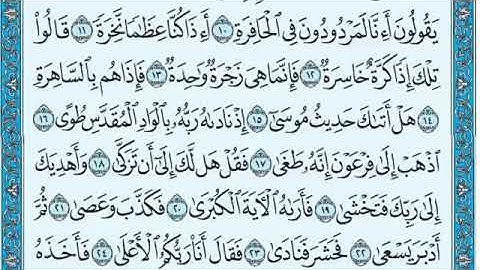 يَقُولُونَ أَءِنَّا لَمَرْدُودُونَ فِي الْحَافِرَةِ ١٠ أَءِذَا كُنَّا عِظَٰمًا نَّخِرَةً ١١ قَالُوا
تِلْكَ إِذًا كَرَّةٌ خَاسِرَةٌ ١٢ فَإِنَّمَا هِيَ زَجْرَةٌ وَٰحِدَةٌ ١٣ فَإِذَا هُم بِالسَّاهِرَةِ
١٤ هَلْ أَتَىٰكَ حَدِيثُ مُوسَىٰ ١٥ إِذْ نَادَىٰهُ رَبُّهُ بِالْوَادِ الْمُقَدَّسِ طُوًى ١٦
اذْهَبْ إِلَىٰ فِرْعَوْنَ إِنَّهُ طَغَىٰ ١٧ فَقُلْ هَل لَّكَ إِلَىٰ أَن تَزَكَّىٰ ١٨ وَأَهْدِيَكَ
إِلَىٰ رَبِّكَ فَتَخْشَىٰ ١٩ فَأَرَىٰهُ الْأَيَةَ الْكُبْرَىٰ ٢٠ فَكَذَّبَ وَعَصَىٰ ٢١ ثُمَّ
أَدْبَرَ يَسْعَىٰ ٢٢ فَحَشَرَ فَنَادَىٰ ٢٣ فَقَالَ أَنَا رَبُّكُمُ الْأَعْلَىٰ ٢٤ فَأَخَذَهُ